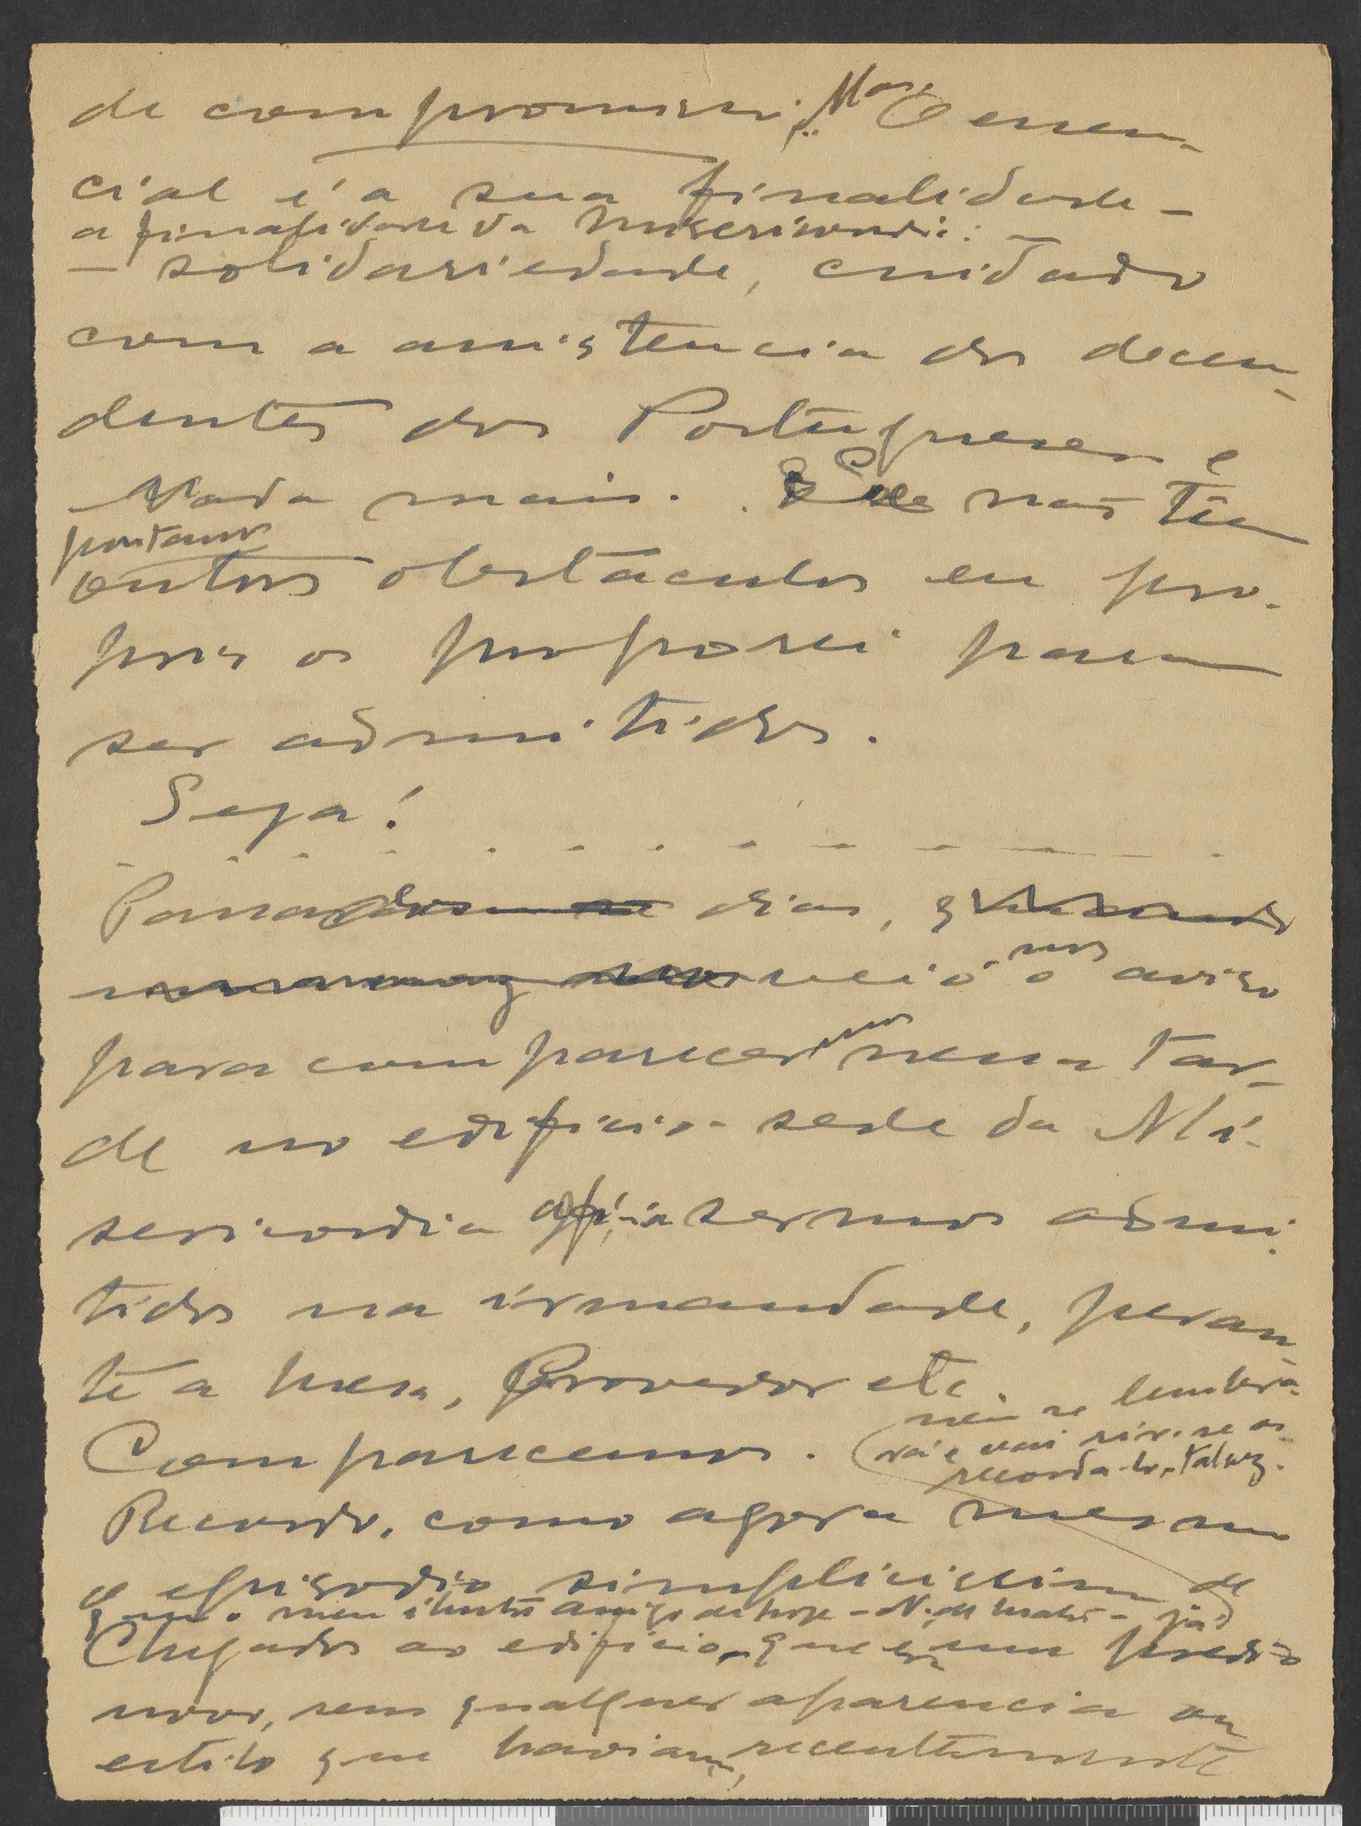 de compromisso. Mas O essen-
cial é a sua finalidade –
a finalidade da Misericordia: –
– solidariedade, cuidado
com a assistencia dos decen-
dentes dos Portugueses e
Nada mais. Se não têm
portanto
outros obstaculos eu pro-
pons os proporei para
ser admitidos.
Seja!
Passados dias,
veio-nos o aviso
para comparecermos nessa tar-
de no edificio-sede da Mi-
sericordia afim sermos admi-
tidos na irmandade, peran-
te a mesa, Provedor etc.
Comparecemos.
nem se lembra-
rá e vai rir-se ao
recorda-lo, talvez.
Recordo, como agora mesmo
o episodio simplicissimo de
que o meu ilustre amigo de hoje – N. de Matos – já
Chegados ao edificio, que era um predio
novo, sem qualquer aparencia ou
estilo que haviam, recentemente